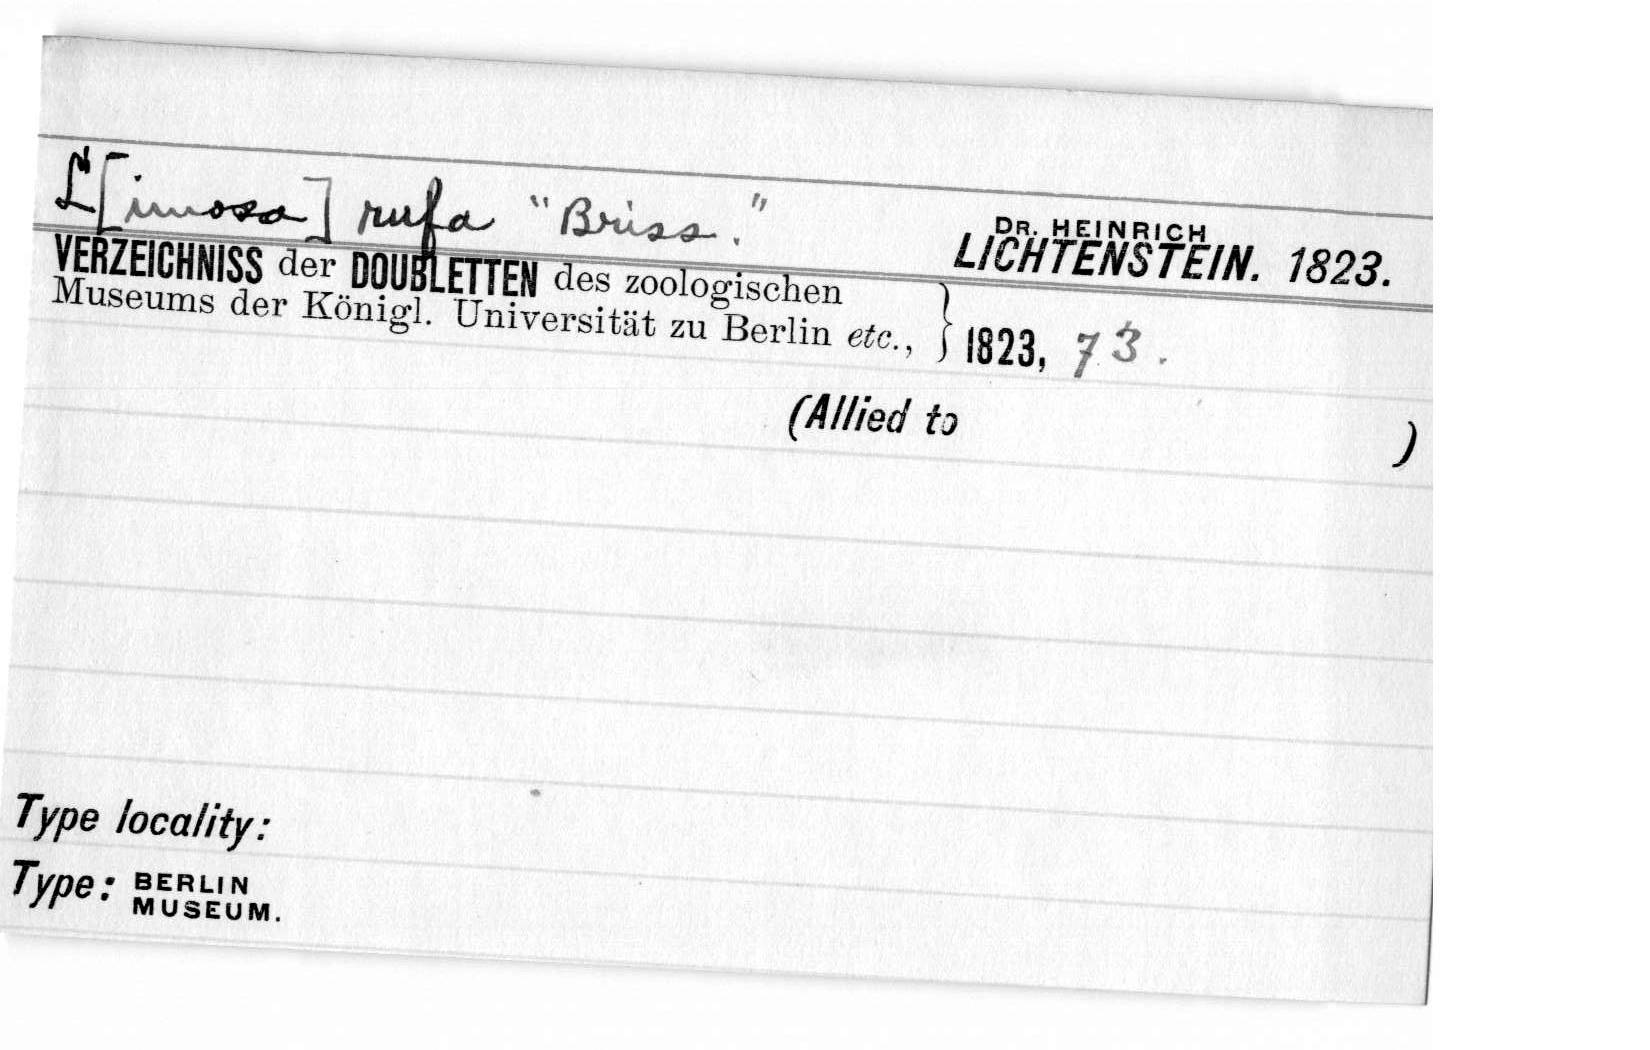 L[imosa] rufa "Briss."
DR. HEINRICH
LICHTENSTEIN. 1823.
VERZEICHNISS der DOUBLETTEN des zoologischen
Museums der Königl. Universität zu Berlin etc., } 1823, 73.
(Allied to )
Type locality:
Type: BERLIN
MUSEUM.